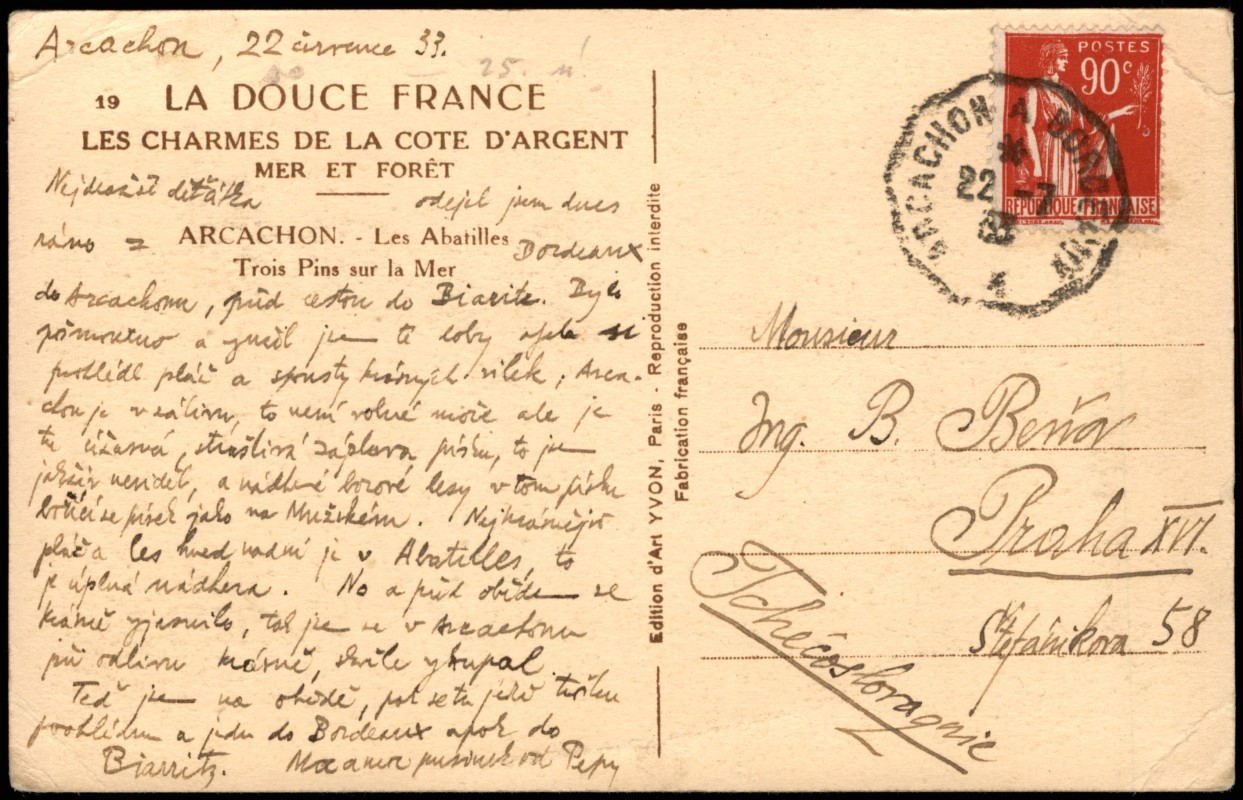 Arcachon, 22 července 33.
25.
19 LA DOUCE FRANCE
LES CHARMES DE LA COTE D'ARGENT
MER ET FORÊT
Nejdražší děťátka odejel jsem dnes
ráno z Bordeaux
ARCACHON. - Les Abatilles
Trois Pins sur la Mer
do Arcachonu, před cestou do Biaritz. Bylo
a jsem se
prohlédl pláž a spousty krásných vilek, Arca-
chon je v zálivu, to není volné moře ale je
tu úžasná, strašlivá záplava písku, to jsem
jakživ neviděl, a nádherné borové lesy v tom písku
písek jako na Mužském. Nejkrásnější
pláž a les hned vedle je v Abatilles, to
je úplná nádhera. No a před obědem se
krásně vyjasnilo, tak jsem se v Arcachonu
při odlivu krásně, skvěle vykupal
Teď jsem na obědě, pak se tu ještě trošku
poohlédnu a jedu do Bordeaux a pak do
Biarritz. pusinek od Pepy
Edition d'Art YVON, Paris - Reproduction interdite
Fabrication française
POSTES
90c
REPUBLIQUE FRANÇAISE
ARCACHON A BORDEAUX
22 -7
33
Monsieur
Ing. B.
Praha XVI.
Štefánikova 58
Tchécoslovaquie